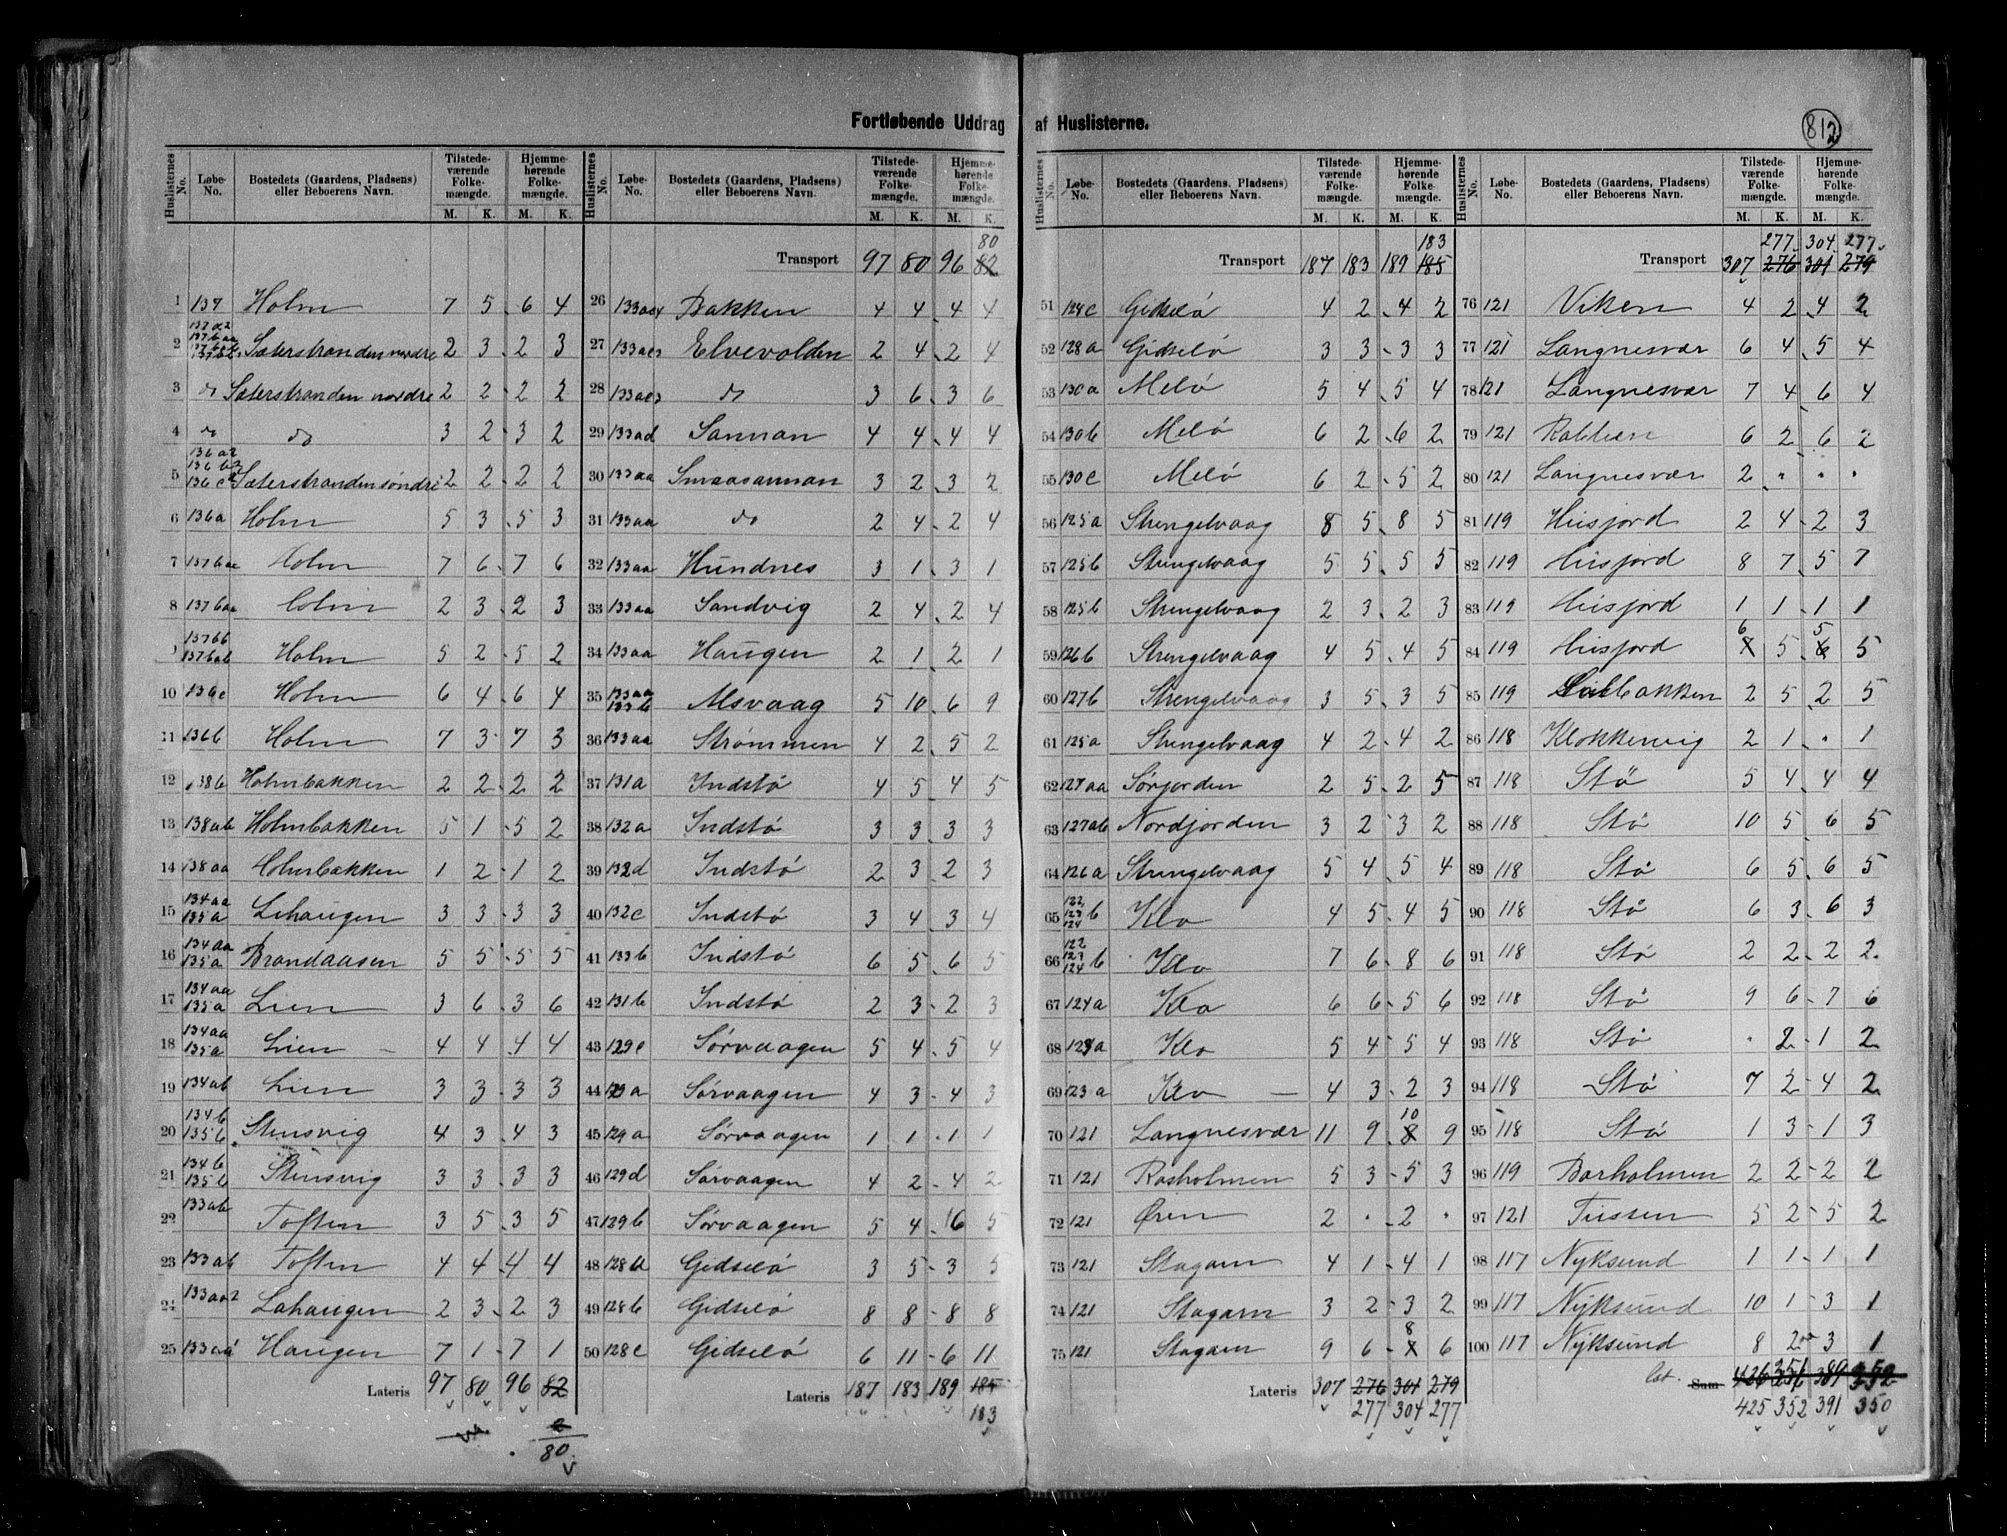 Fortløbende Uddrag af Huslisterne.
812
Huslisternes No. Løbe-No. Bostedets (Gaardens, Pladsens) eller Beboerens Navn. Tilstedeværende Folkemængde. M. K. Hjemmehørende Folkemængde. M. K.
1 137 Holm 7 5 6 4
2 137a2 137baa 137bab 137b2 Sæterstranden nordre 2 3 2 3
3 do Sæterstranden nordre 2 2 2 2
4 do do 3 2 3 2
5 136a2 136b2 136c2 Sæterstranden søndre 2 2 2 2
6 136a Holm 5 3 5 3
7 137baa Holm 7 6 7 6
8 137baa Holm 2 3 2 3
9 137bb 137bab Holm 5 2 5 2
10 136c Holm 6 4 6 4
11 136b Holm 7 3 7 3
12 138b Holmbakken 2 2 2 2
13 138ab Holmbakken 5 1 5 2
14 138aa Holmbakken 1 2 1 2
15 134aa 135a Lihaugen 3 3 3 3
16 134aa 135a Brandaasen 5 5 5 5
17 134aa 135a Lien 3 6 3 6
18 134aa 135a Lien 4 4 4 4
19 134ab Lien 3 3 3 3
20 134b 135b Stensvig 4 3 4 3
21 134b 135b Stensvig 3 3 3 3
22 133ab Toften 3 5 3 5
23 133ab Toften 4 4 4 4
24 133aa2 Lahaugen 2 3 2 3
25 133aa Haugen 7 1 7 1
Lateris 97 80 96 82
80
Huslisternes No. Løbe-No. Bostedets (Gaardens, Pladsens) eller Beboerens Navn. Tilstedeværende Folkemængde. M. K. Hjemmehørende Folkemængde. M. K.
80
Transport 97 80 96 82
26 133ac4 Bakken 4 4 4 4
27 133ac3 Elvevolden 2 4 2 4
28 133ac3 do 3 6 3 6
29 133ad Sannan 4 4 4 4
30 133aa Smaasannan 3 2 3 2
31 133aa do 2 4 2 4
32 133aa Hundnes 3 1 3 1
33 133aa Sandvig 2 4 2 4
34 133aa Haugen 2 1 2 1
35 133aa 133b Alsvaag 5 10 6 9
36 133aa Strømmen 4 2 5 2
37 131a Indstø 4 5 4 5
38 132a Indstø 3 3 3 3
39 132d Indstø 2 3 2 3
40 132c Indstø 3 4 3 4
41 133b Indstø 6 5 6 5
42 131b Indstø 2 3 2 3
43 129c Sørvaagen 5 4 5 4
44 129a Sørvaagen 4 3 4 3
45 129a Sørvaagen 1 1 1 1
46 129d Sørvaagen 4 2 4 2
47 129b Sørvaagen 5 4 6 5
48 128b Gidselø 3 5 3 5
49 128b Gidselø 8 8 8 8
50 128c Gidselø 6 11 6 11
Lateris 187 183 189 185
183
Huslisternes No. Løbe-No. Bostedets (Gaardens, Pladsens) eller Beboerens Navn. Tilstedeværende Folkemængde. M. K. Hjemmehørende Folkemængde. M. K.
183
Transport 187 183 189 185
51 128c Gidselø 4 2 4 2
52 128a Gidselø 3 3 3 3
53 130a Melø 5 4 5 4
54 130b Melø 6 2 6 2
55 130c Melø 6 2 5 2
56 125a Strengelvaag 8 5 8 5
57 125b Strengelvaag 5 5 5 5
58 125b Strengelvaag 2 3 2 3
59 126b Strengelvaag 4 5 4 5
60 127b Strengelvaag 3 5 3 5
61 125a Strengelvaag 4 2 4 2
62 127aa Sørjorden 2 5 2 5
63 127ab Nordjorden 3 2 3 2
64 126a Strengelvaag 5 4 5 4
65 122 123 124 b Klo 4 5 4 5
66 122 123 124 b Klo 7 6 8 6
67 124a Klo 6 6 5 6
68 123a Klo 5 4 5 4
69 123a Klo 4 3 2 3
10
70 121 Langnesvær 11 9 8 9
71 121 Rosholmen 5 3 5 3
72 121 Øren 2 " 2 "
73 121 Stagarn 4 1 4 1
74 121 Stagarn 3 2 3 2
8
75 121 Stagarn 9 6 7 6
Lateris 307 276 301 279
277 304 277
Huslisternes No. Løbe-No. Bostedets (Gaardens, Pladsens) eller Beboerens Navn. Tilstedeværende Folkemængde. M. K. Hjemmehørende Folkemængde. M. K.
277 304 277
Transport 307 276 301 279
76 121 Viken 4 2 4 2
77 121 Langnesvær 6 4 5 4
78 121 Langnesvær 7 4 6 4
79 121 6 2 6 2
80 121 Langnesvær 2 " " "
81 119 Husjord 2 4 2 3
82 119 Husjord 8 7 5 7
83 119 Husjord 1 1 1 1
6 5
84 119 Husjord 7 5 6 5
85 119 2 5 2 5
86 118 Klokkervig 2 1 " 1
87 118 Stø 5 4 4 4
88 118 Stø 10 5 6 5
89 118 Stø 6 5 6 5
90 118 Stø 6 3 6 3
91 118 Stø 2 2 2 2
92 118 Stø 9 6 7 6
93 118 Stø " 2 1 2
94 118 Stø 7 2 4 2
95 118 Stø 1 3 1 3
96 119 Barholmen 2 2 2 2
97 121 Tussen 5 2 5 2
98 117 Nyksund 1 1 1 1
99 117 Nyksund 10 1 3 1
100 117 Nyksund 8 2 3 1
lat. Sum 426 351 389 352
425 352 391 350